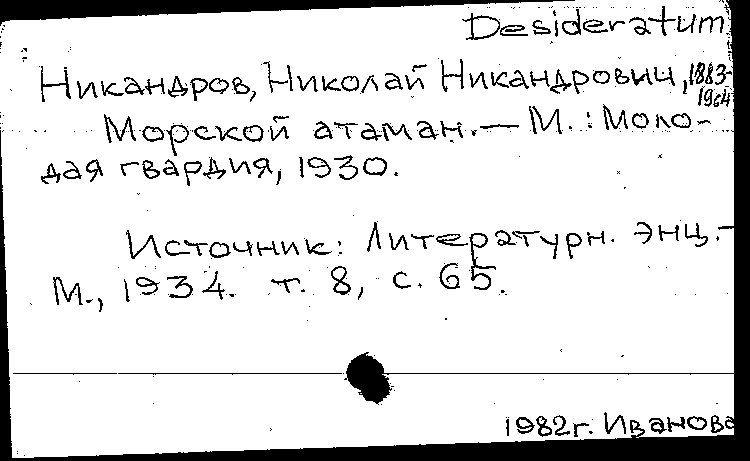 Desideratum
Никандров, Николай Никандрович, 1883-
1964
Морской атаман. — М.: Моло-
дая гвардия, 1930.
Источник: Литературн. энц. -
М., 1934. т. 8, с. 65.
1982г. Иванова